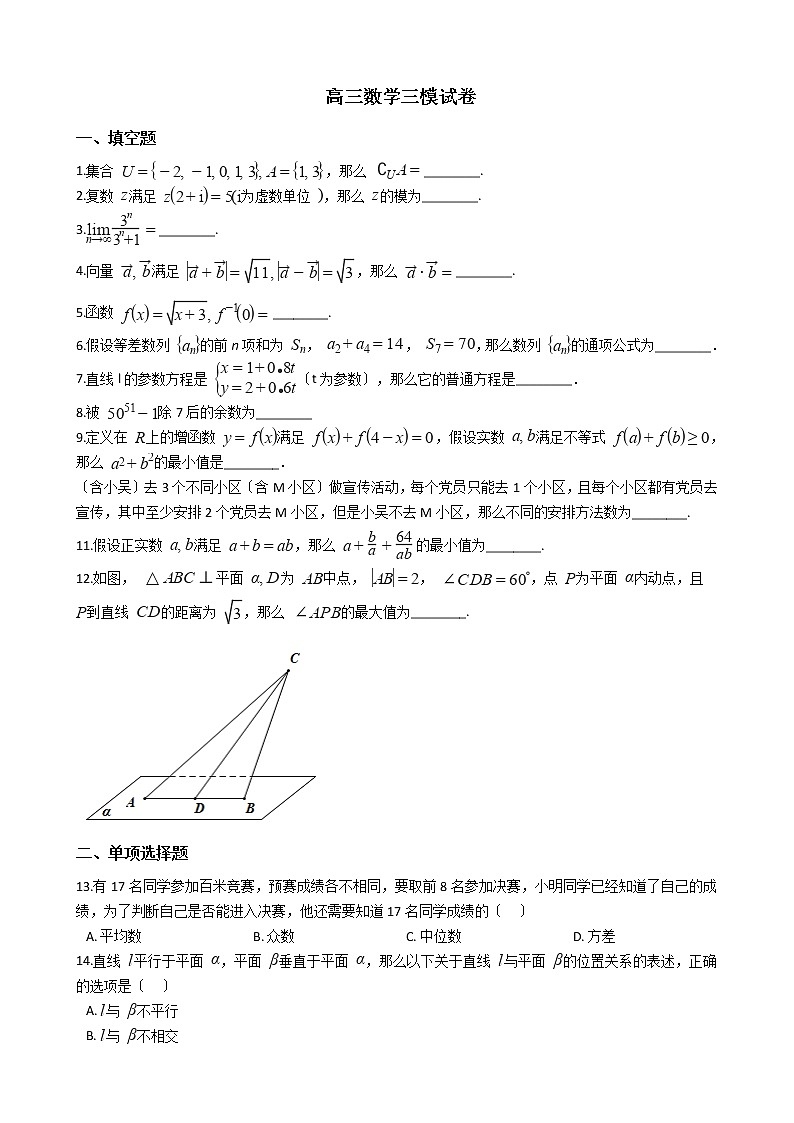 高三数学三模试卷
一、填空题
1.集合 U={−2, −1, 0, 1, 3}, A={1, 3}，那么 ∁UA=________.
2.复数 z满足 z(2+i)=5(i为虚数单位 )，那么 z的模为________.
3.lim n→∞ 3ⁿ/(3ⁿ+1) =________.
4.向量 a→, b→满足 |a→+b→|=√11, |a→−b→|=√3，那么 a→·b→=________.
5.函数 f(x)=√(x+3), f⁻¹(0)=________.
6.假设等差数列 {aₙ}的前 n 项和为 Sₙ， a₂+a₄=14， S₇=70，那么数列 {aₙ}的通项公式为________．
7.直线 l 的参数方程是 {x=1+0•8t y=2+0•6t〔t 为参数〕，那么它的普通方程是________．
8.被 50⁵¹−1除 7 后的余数为________
9.定义在 R上的增函数 y=f(x)满足 f(x)+f(4−x)=0，假设实数 a, b满足不等式 f(a)+f(b)≥0，
那么 a²+b²的最小值是________．
〔含小吴〕去 3 个不同小区〔含 M 小区〕做宣传活动，每个党员只能去 1 个小区，且每个小区都有党员去
宣传，其中至少安排 2 个党员去 M 小区，但是小吴不去 M 小区，那么不同的安排方法数为________.
11.假设正实数 a, b满足 a+b=ab，那么 a+b/a+64/ab 的最小值为________.
12.如图， △ABC⊥平面 α, D为 AB中点， |AB|=2， ∠CDB=60°，点 P为平面 α内动点，且
P到直线 CD的距离为 √3，那么 ∠APB的最大值为________.
C
A
D
B
α
二、单项选择题
13.有 17 名同学参加百米竞赛，预赛成绩各不相同，要取前 8 名参加决赛，小明同学已经知道了自己的成
绩，为了判断自己是否能进入决赛，他还需要知道 17 名同学成绩的〔 〕
A. 平均数 B. 众数 C. 中位数 D. 方差
14.直线 l平行于平面 α，平面 β垂直于平面 α，那么以下关于直线 l与平面 β的位置关系的表述，正确
的选项是〔 〕
A. l与 β不平行
B. l与 β不相交